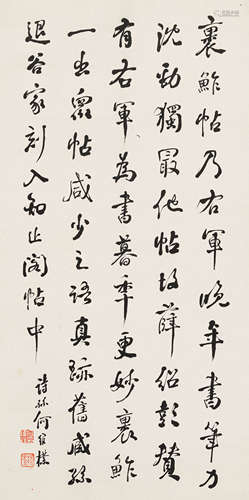 裹鮓帖乃右軍晚年書筆力
沈勁獨最他帖故薛紹彭贊
有右軍為書暮年更妙裹鮓
一出眾帖咸少之語真跡舊藏孫
退谷家刻入知止閣帖中
詩孫何維樸